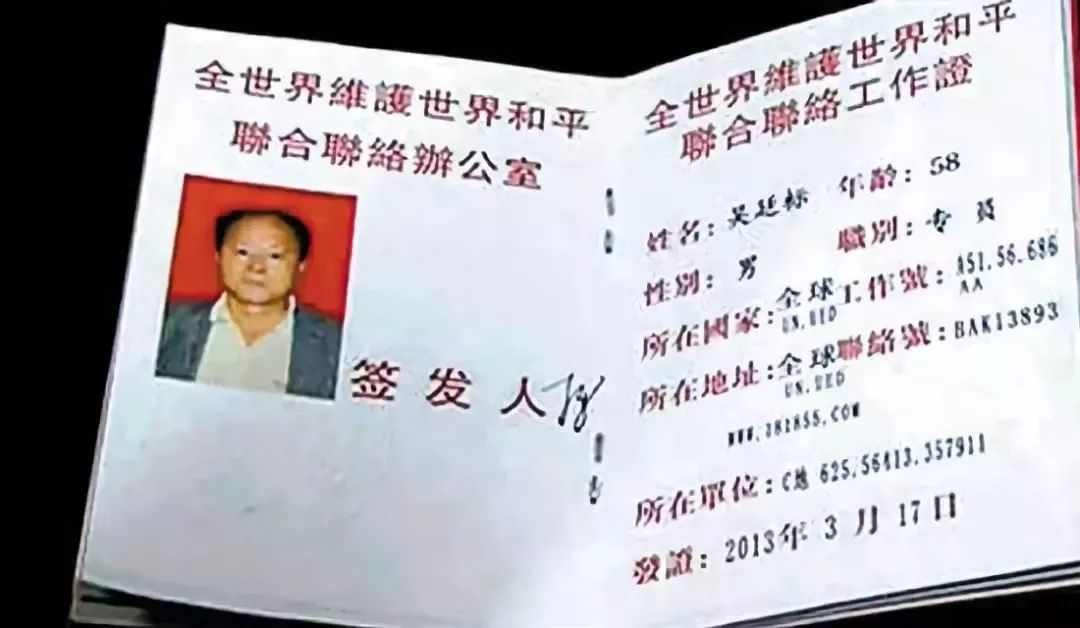 全世界維護世界和平
聯合聯絡辦公室
签发人
全世界維護世界和平
聯合聯絡工作證
姓名：吴廷标 年齡：58
性別：男 職別：专员
所在國家：全球工作號：A51.56.686
UN.UED AA
所在地址：全球聯絡號：BAK13893
UN.UED
WWW.181855.COM
所在單位：C地 625.56413.357911
發證：2013年3月17日